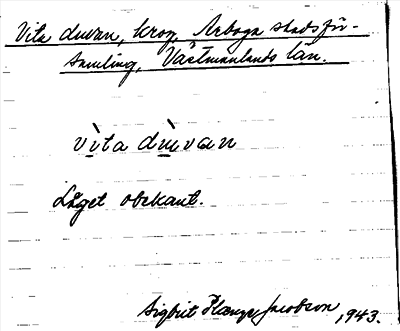 Vita duvan, krog, Arboga stadsför-
samling, Västmanlands län.
vìta dùvan
Läget obekant.
Sigbrit Plænge Jacobson, 1943.